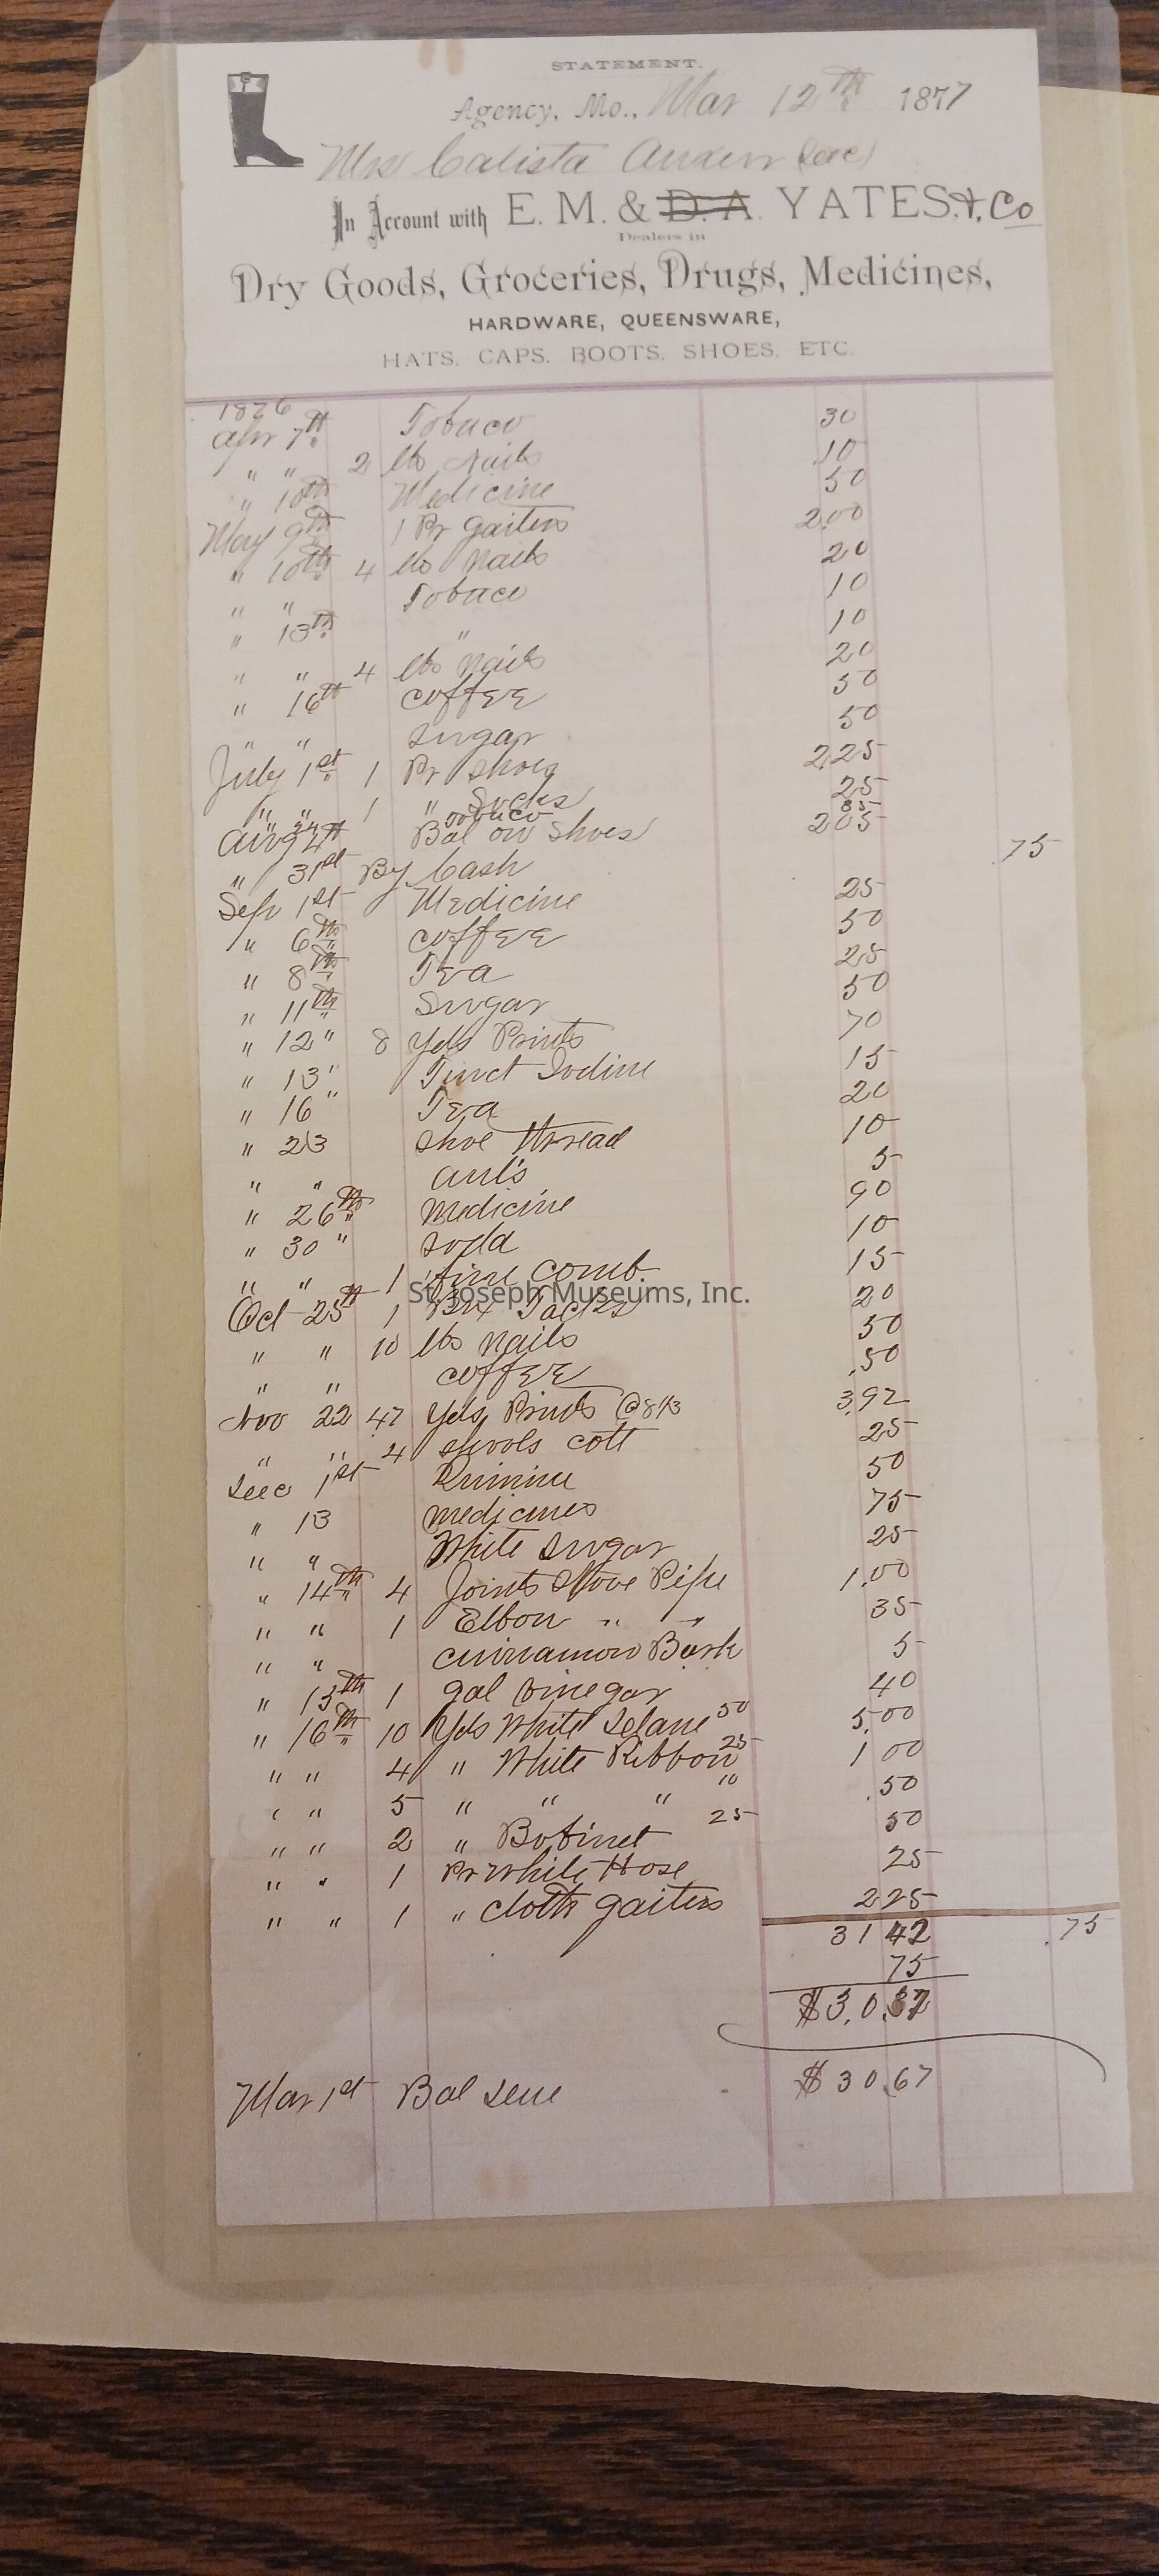 STATEMENT.
Agency, Mo., Mar 12th 1877
Mrs Calista (Dec)
In Account with E. M. & D. A. YATES. & Co
Dealers in
Dry Goods, Groceries, Drugs, Medicines,
HARDWARE, QUEENSWARE,
HATS. CAPS. BOOTS. SHOES. ETC.
1876
Apr 7th Tobaco 30
" " 2 lbs Nails 10
" 10th Medicine 50
May 9th 1 Pr gaiters 2.00
" 10th 4 lbs Nails 20
" " Tobaco 10
" 13th " 10
" " 4 lbs Nails 20
" 16th coffee 50
" " sugar 50
July 1st 1 Pr shoes 2.25
" " 1 " Socks 25
" " Tobaco 85
Aug 4th Bal on Shoes 205
" 31st By Cash .75
Sep 1st Medicine 25
" 6th coffee 50
" 8th Tea 25
" 11th Sugar 50
" 12 " 8 Yds Prints 70
" 13 " Tinct Iodine 15
" 16 " Tea 20
" 23 shoe thread 10
" " aul's 5
" 26th Medicine 90
" 30 " soda 10
" " 1 fine comb 15
Oct 25th 1 Bx Tacks 20
" " 10 lbs nails 50
" " coffee .50
Nov 22 47 Yds Prints @ 8 1/3 3.92
" " 4 spools cott 25
Dec 1st Quinine 50
" 13 medicines 75
" " White sugar 25
" 14th 4 Joints Stove Pipe 1.00
" " 1 Elbow " " 35
" " cinnamon Bark 5
" 15th 1 gal vinegar 40
" 16th 10 Yds White Delane 50 5.00
" " 4 " White Ribbon 25 1 00
" " 5 " " " 10 .50
" " 2 " Bobinet 25 50
" " 1 Pr White Hose 25
" " 1 " cloth gaiters 225
31 42 .75
75
$3.0.67
Mar 1st Bal Due $30.67
St. Joseph Museums, Inc.